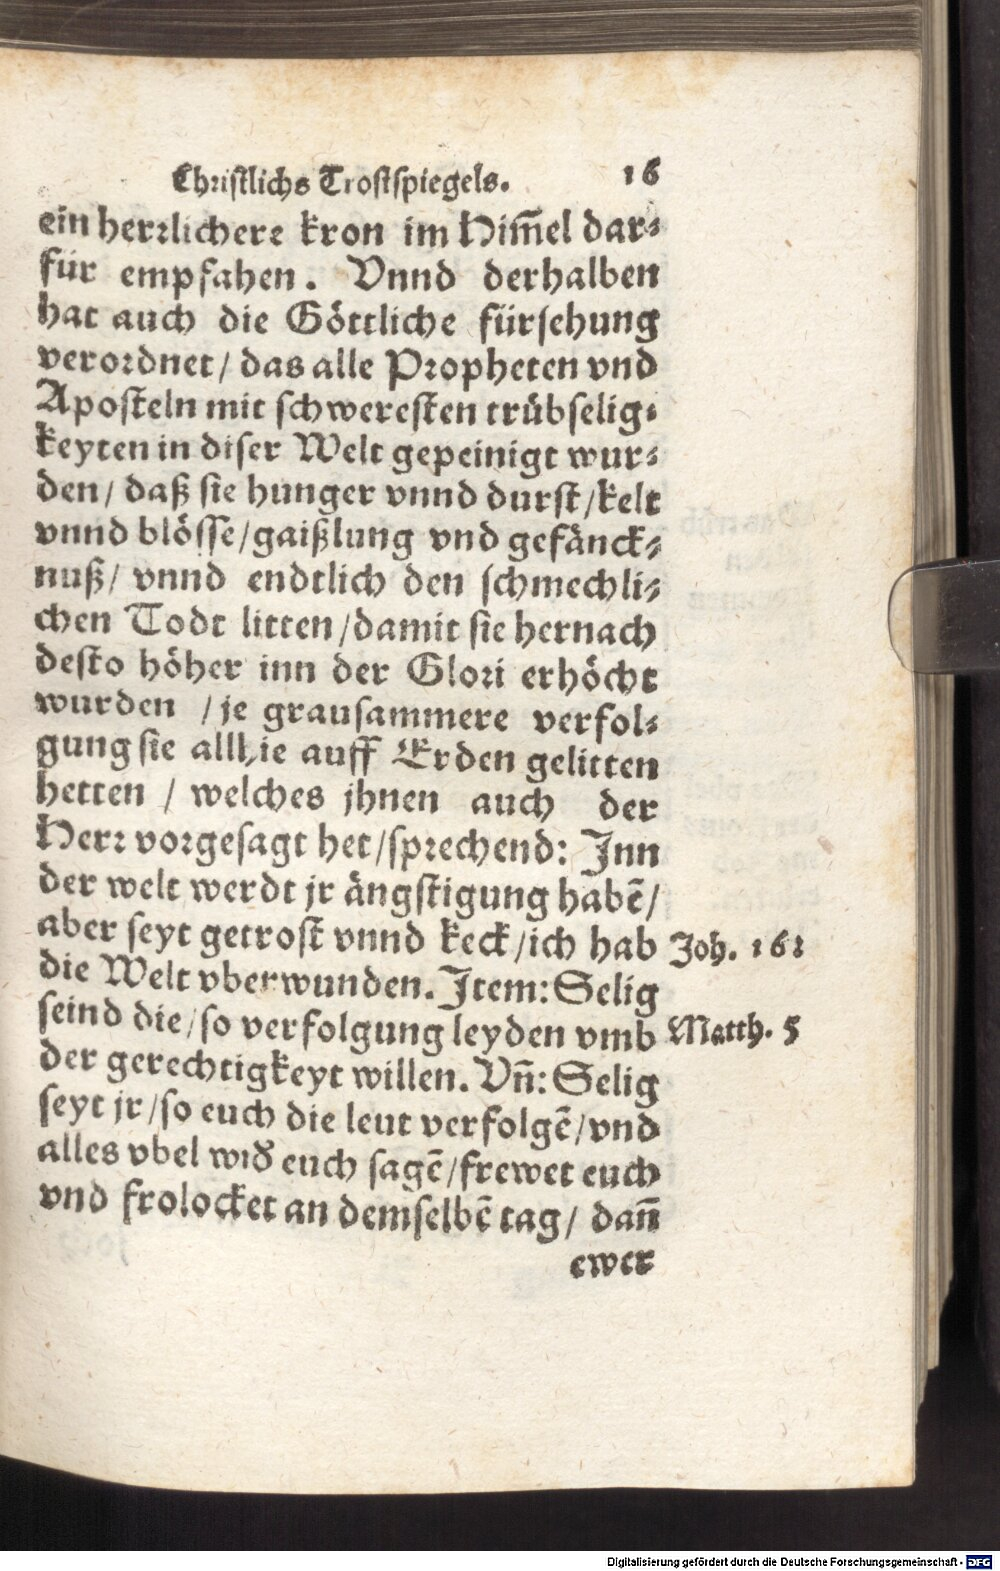 Christlichs Trostspiegels. 16
ein herrlichere kron im Him̃el dar⸗
für empfahen. Vnnd derhalben
hat auch die Göttliche fürsehung
verordnet/ das alle Propheten vnd
Aposteln mit schweresten trübselig⸗
keyten in diser Welt gepeinigt wur⸗
den/ daß sie hunger vnnd durst/kelt
vnnd blösse/gaißlung vnd gefänck⸗
nuß/ vnnd endtlich den schmechli⸗
chen Todt litten/damit sie hernach
desto höher inn der Glori erhöcht
wurden /je grausammere verfol⸗
gung sie allhie auff Erden gelitten
hetten / welches jhnen auch der
Herr vorgesagt het/sprechend: Inn
der welt werdt jr ängstigung habẽ/
aber seyt getrost vnnd keck/ich hab Joh. 161
die Welt vberwunden. Item: Selig
seind die/so verfolgung leyden vmb Matth. 5
der gerechtigkeyt willen. Vñ: Selig
seyt jr/so euch die leut verfolgẽ/vnd
alles vbel wid̛ euch sagẽ/frewet euch
vnd frolocket an demselbẽ tag/ dañ
ewer
Digitalisierung gefördert durch die Deutsche Forschungsgemeinschaft - DFG